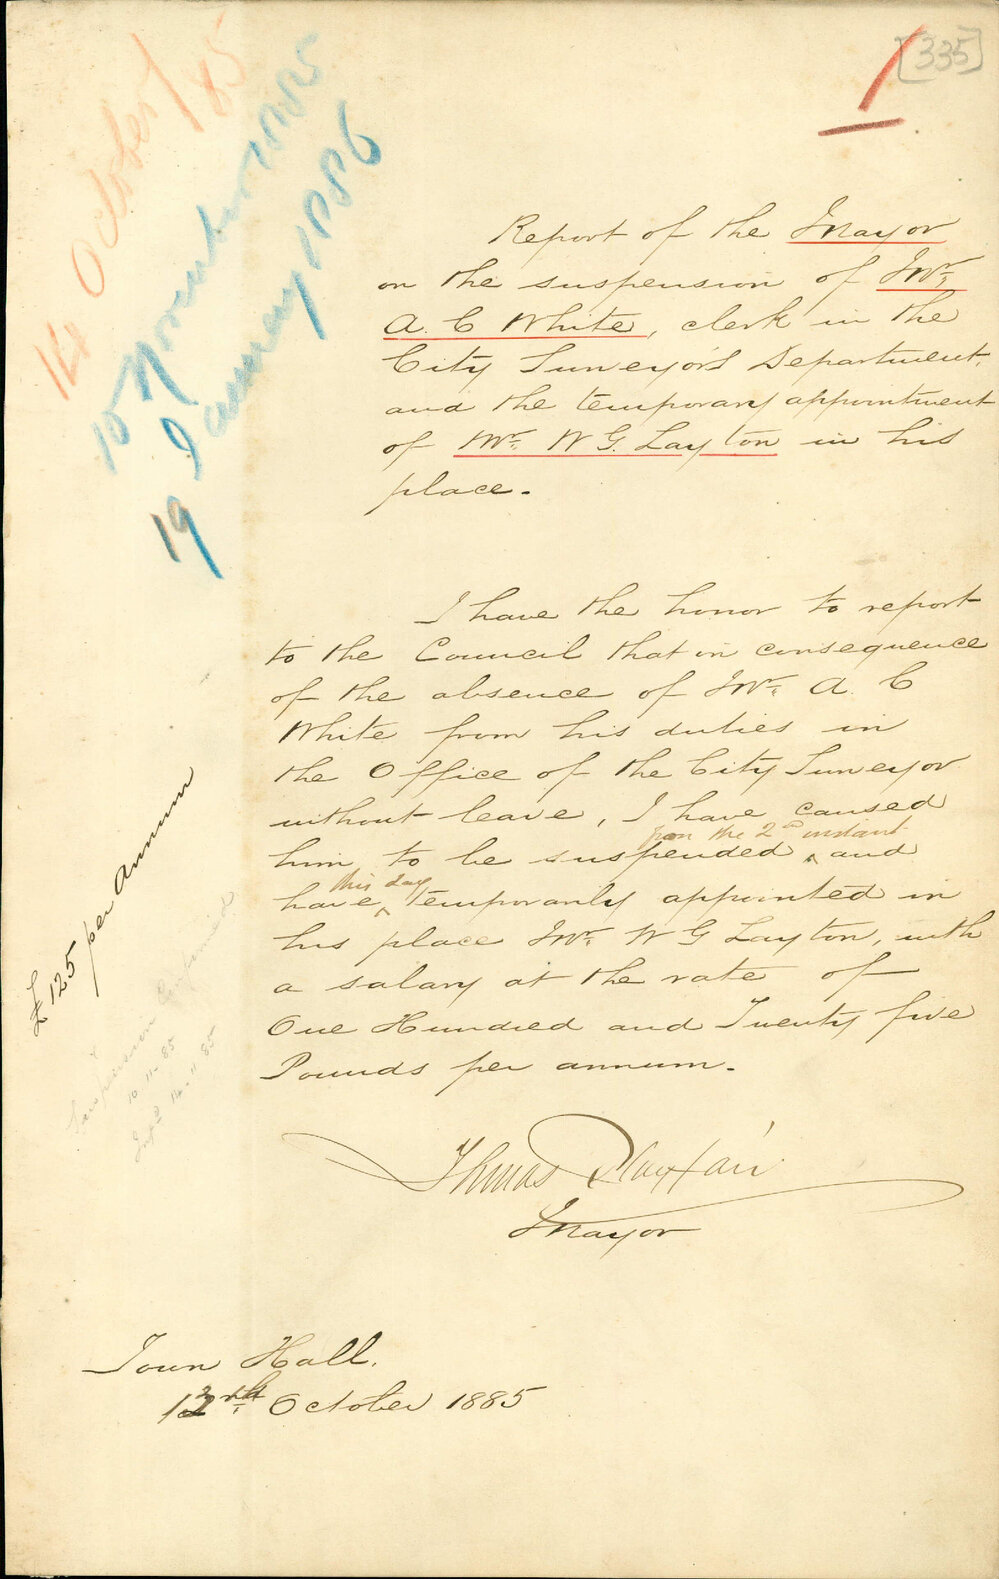 [335]
1
14 October/85
10 November/1885
19 January/1886
Report of the Mayor
on the suspension of Mr.
A. C White, clerk in the
City Surveyor's Department,
and the temporary appointment
of Mr. W G. Layton in his
place.
I have the honor to report
to the Council that in consequence
of the absence of Mr. A. C
White from his duties in
the Office of the City Surveyor
without leave, I have caused
from the 2d instant
him to be suspended ^ and
this day
have ^ temporarily appointed in
his place Mr. W G Layton, with
a salary at the rate of
One Hundred and Twenty five
Pounds per annum.
£125 per Annum
Suspension Confirmed
10-11-85
14-11-85
Thomas Playfair
Mayor
Town Hall.
13th October 1885